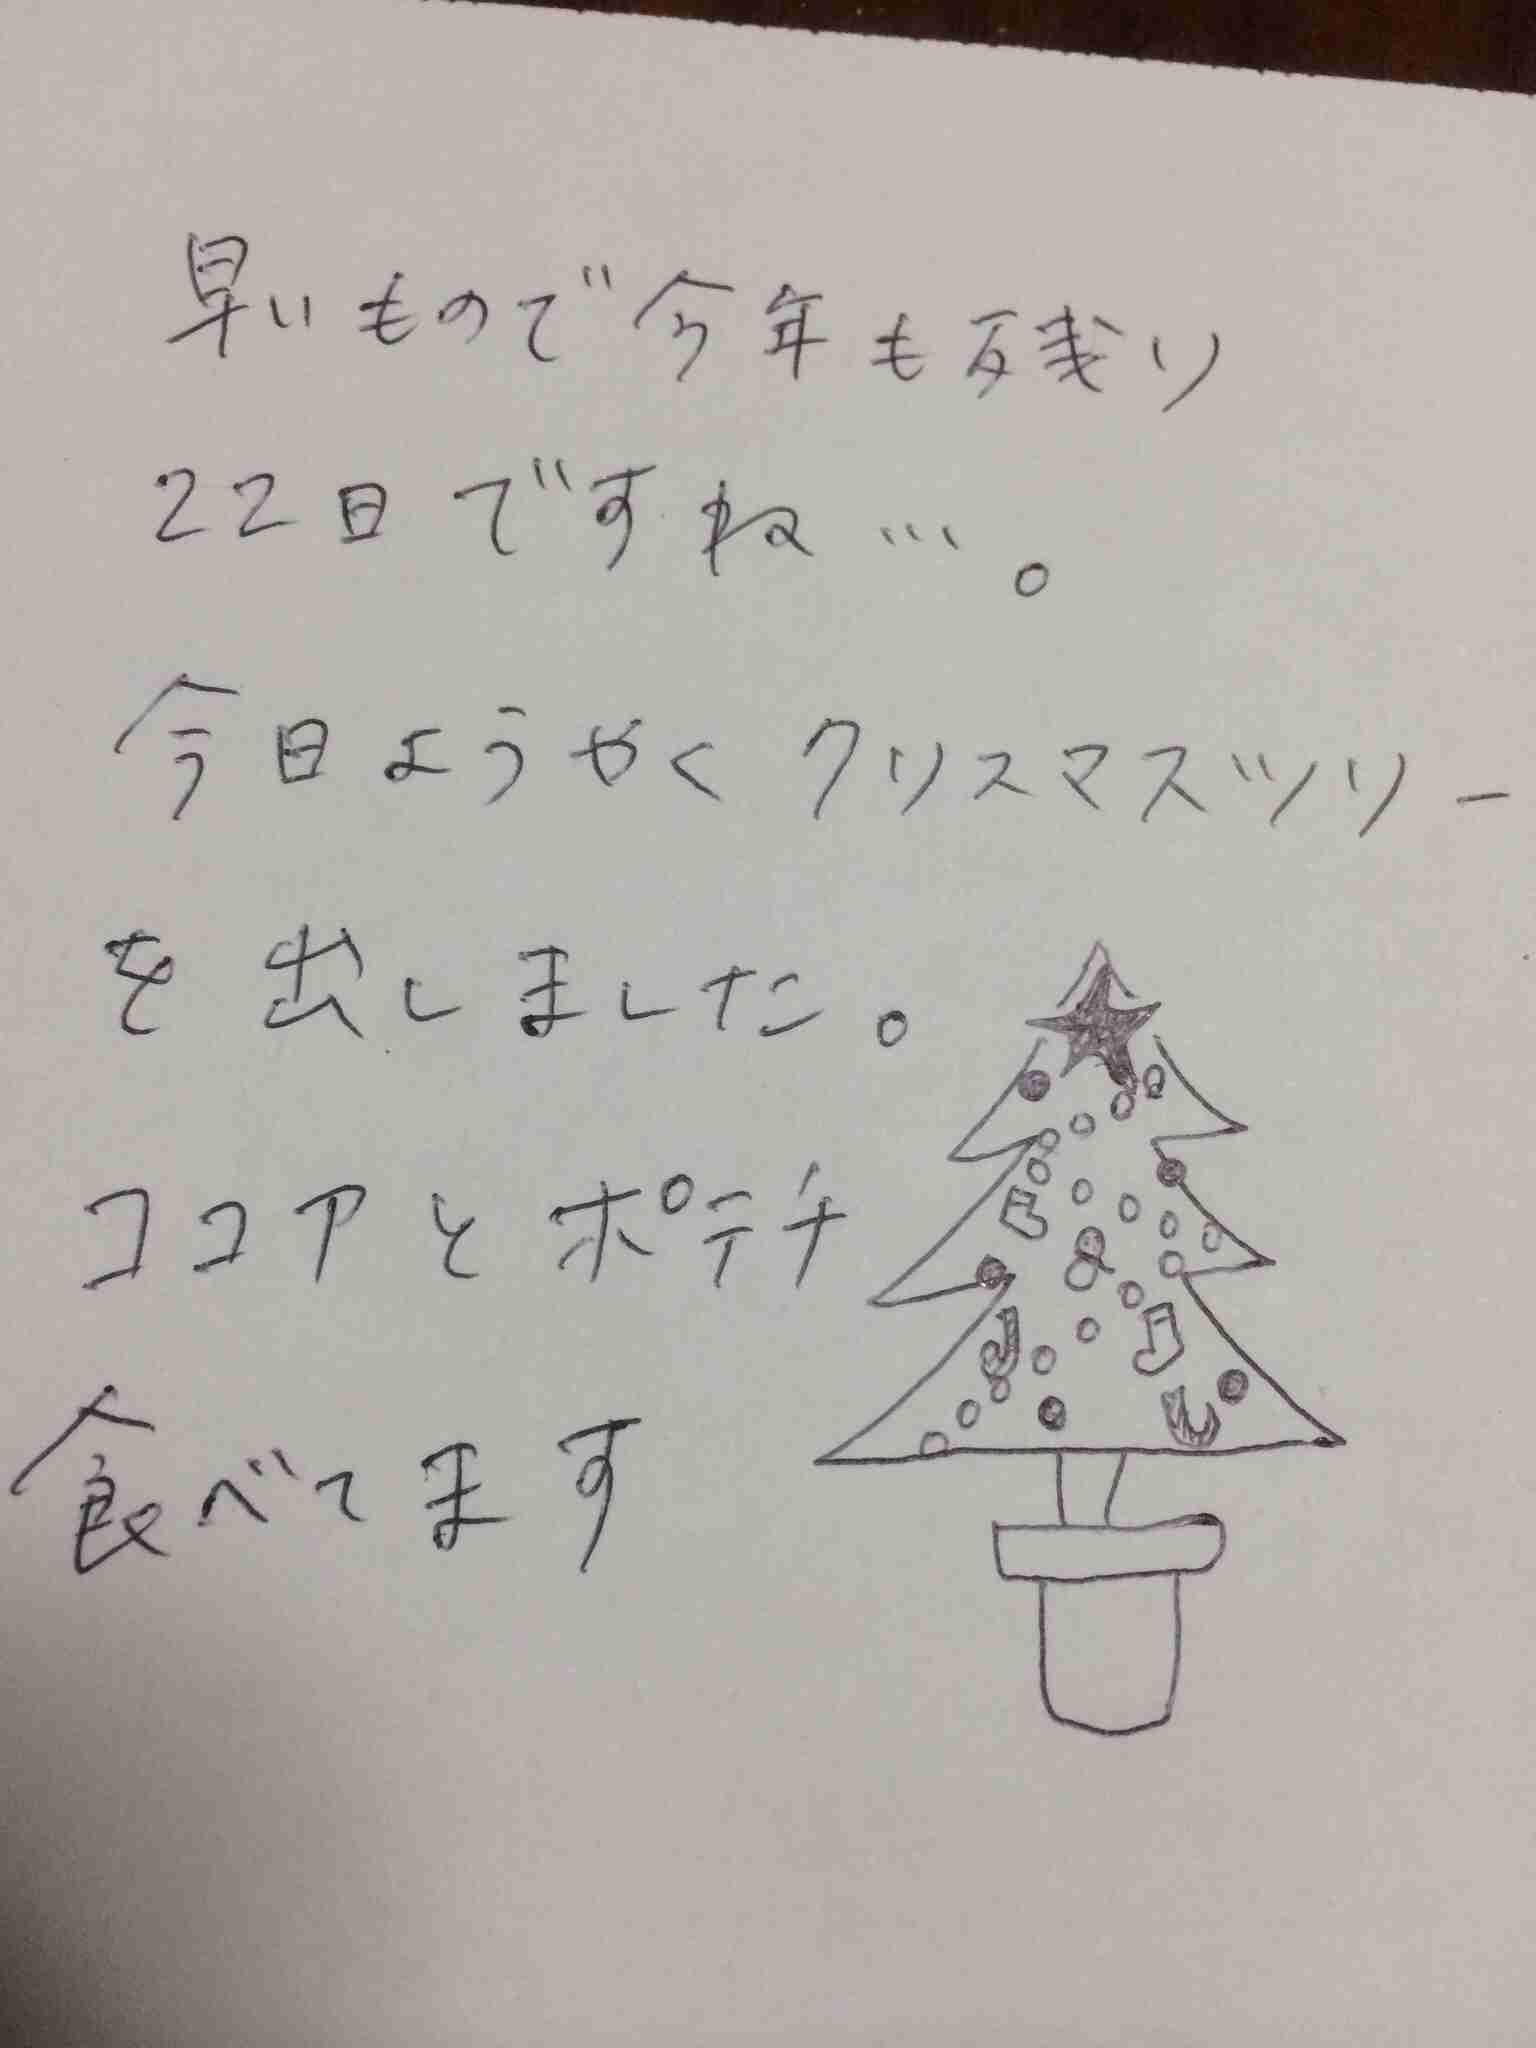 早いもので今年も残り
22日ですね…。
今日ようやくクリスマスツリー
を出しました。
ココアとポテチ
食べてます